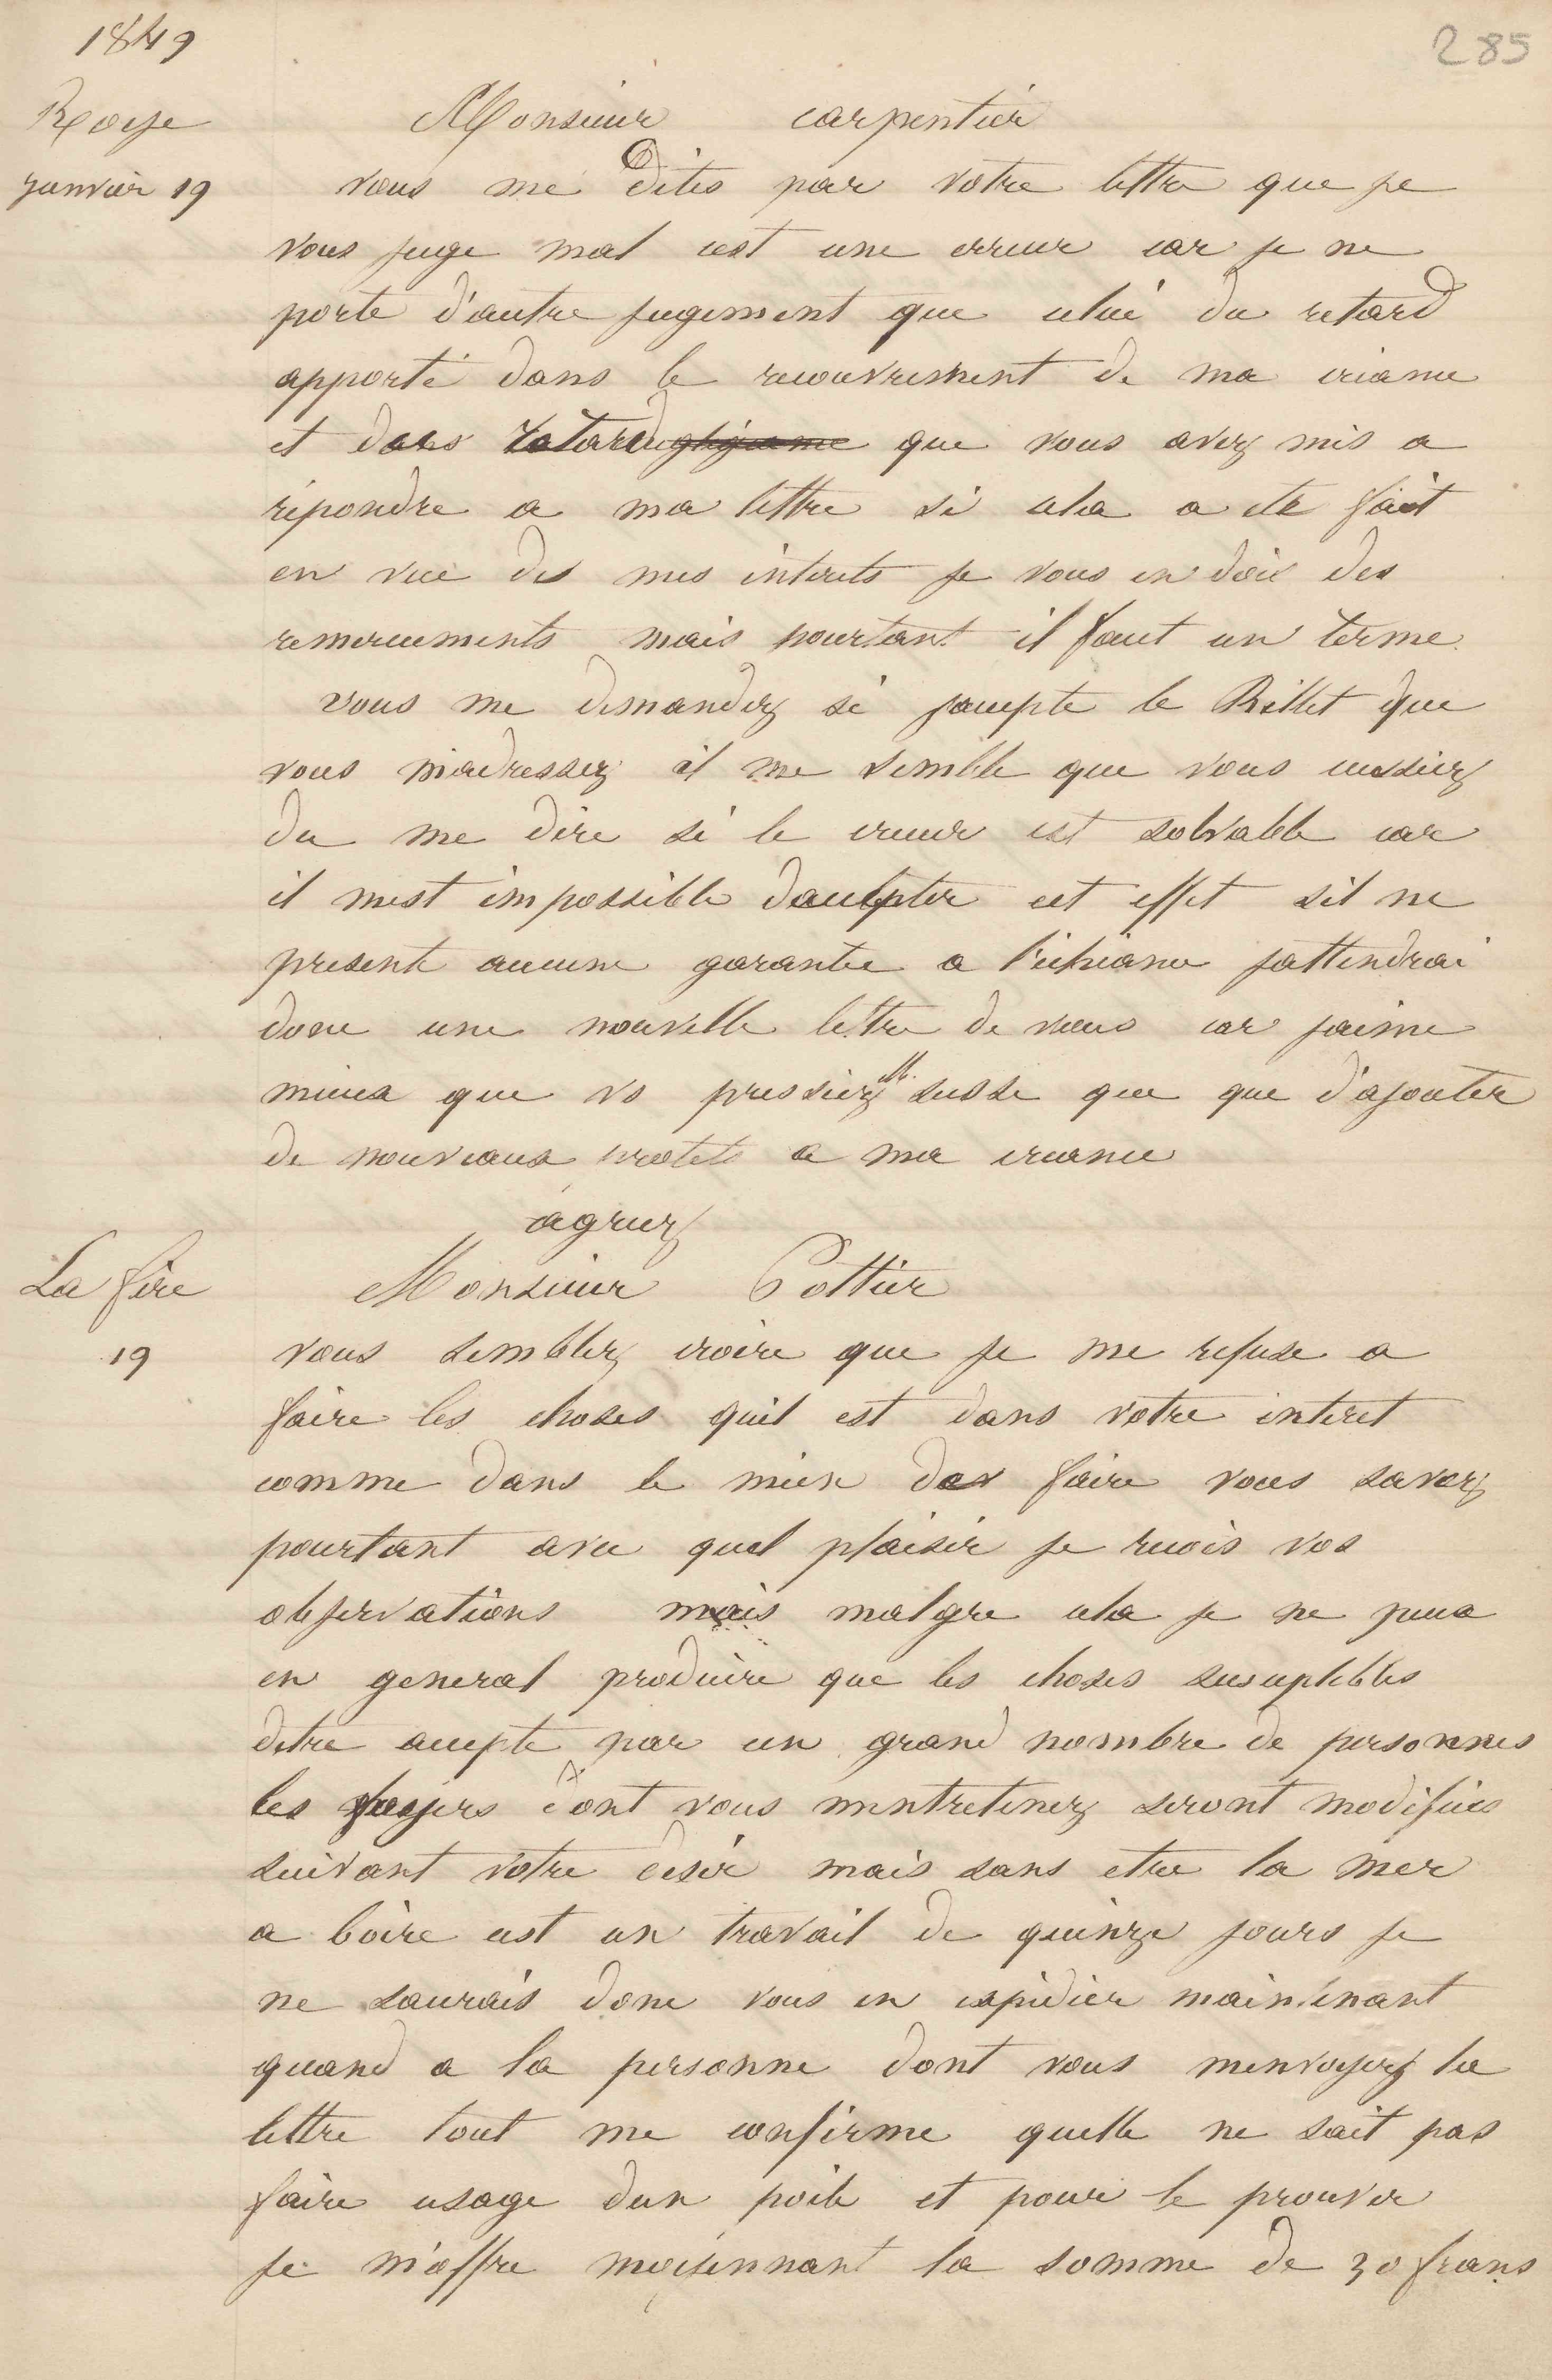 1849
285
Roye
Monsieur carpentier
janvier 19
vous me dites par votre lettre que je
vous juge mal cest une erreur car je ne
porte d'autre jugement que celui du retard
apporté dans le recouvrement de ma creance
et dans retard que vous avez mis a
répondre a ma lettre si cela a ete fait
en vue des mes interets je vous en dois des
remerciements mais pourtant il faut un terme
vous me demandez si jaccepte le Billet que
vous m'adressez il me semble que vous eussiez
du me dire si le creeur est solvable car
il mest impossible daccepter cet effet sil ne
presente aucune garantie a l'echeance jattendrai
donc une nouvelle lettre de vous car jaime
mieux que vs pressiez Mr. susse que que d'ajouter
de nouveaux protets a ma creance
agreez
La fère
Monsieur Pottier
19
vous semblez croire que je me refuse a
faire les choses quil est dans votre interet
comme dans le mien de faire vous savez
pourtant avec quel plaisir je recois vos
observations mais malgre cela je ne peux
en general produire que les choses suceptibles
detre accepte par un grand nombre de personnes
les foyers dont vous mentretenez seront modifiées
suivant votre desir mais sans etre la mer
a boire cest un travail de quinze jours je
ne saurais donc vous en expédier maintenant
quand a la personne dont vous menvoyez la
lettre tout me confirme quelle ne sait pas
faire usage dun poile et pour le prouver
je m'offre moyennant la somme de 30 frans